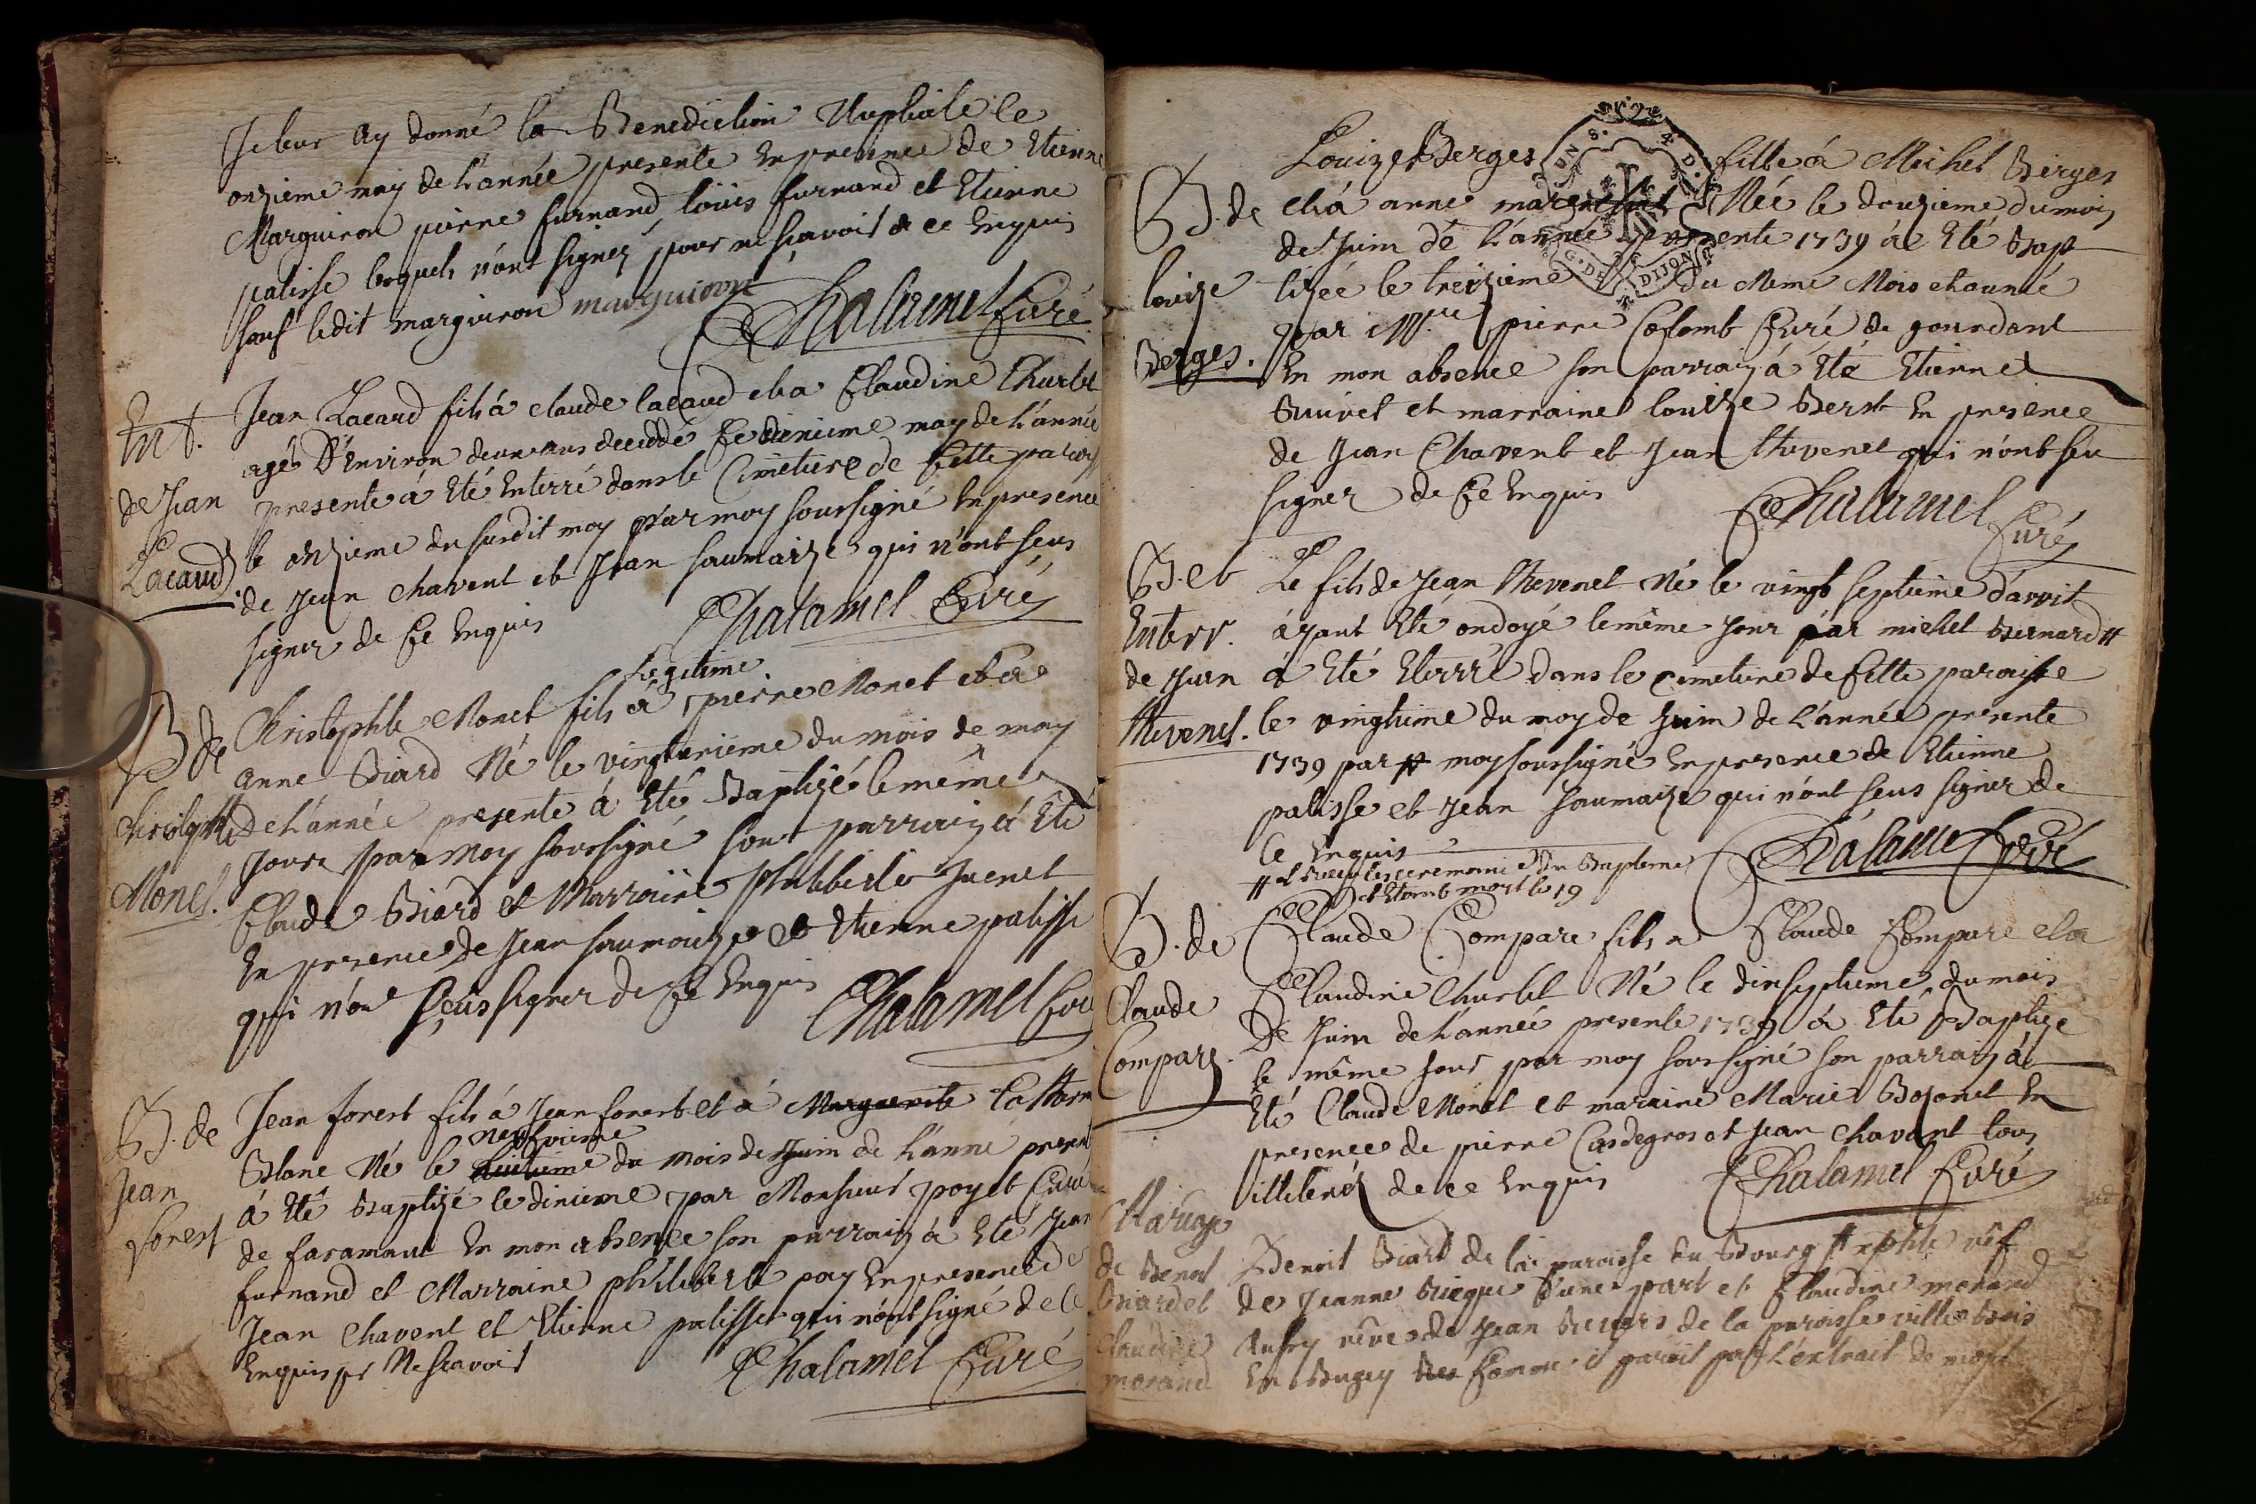 Je leur ay donné la Benediction Nuptiale le
onzieme may de L'année presente En presence de Etienne
Marguiron pierre furnand, louis furnand et Etienne
palisse lesquels n'ont signez pour ne sçavoir de ce Enquis
sauf ledit marguiron marguiron
Chalamel Curé
Ent.
de Jean
Lacaud
Jean Lacaud fils á claude lacaud et a Claudine Churlet
agés D'Environ deux ans decedé Le dixieme may de L'année
presente á Eté Enterré dans le Cimetiere de Cette paroisse
le onzieme du susdit moy par moy soussigné En presence
de Jean Chavent et Jean saumaize qui n'ont seus
signer de Ce Enquis
Chalamel Curé
B de
Christophle
Monet.
legitime
Christophle Monet fils á pierre Monet et a
anne Biard Né le vingt unieme du mois de may
de L'année presente á Eté Baptizé le même
Jour par moy soussigné son parrain á Eté
Claude Biard et Marraine philiberte Juenet
En presence de Jean saumaize et Etienne palisse
qui n'on Sçeus signer de Ce Enquis
Chalamel Curé
B. de
Jean
forest
Jean forest fils á Jean forest et á Marguerite Catherine
neufvieme
Blanc Né le huitieme du mois de Juin de L'anné presente
á Eté Baptizé le dixieme par Monsieur poyet Curé
de faramant En mon absence son parrain á Eté Jean
furnand et Marraine philiberte pay En presence de
Jean Chavent et Etienne palisse qui n'ont signé de ce
Enquis pr Ne sçavoir
Chalamel Curé
B. de
louize
Berges.
Louize Berges fille á Michel Berges
et á anne Née le douzieme du mois
de Juin de L'année presente 1739 á Eté Bap
tizée le treizieme du Meme Mois et année
par Mre pierre Colomb Curé de gourdant
En mon absence son parrain á Eté Etienne
Buivet et marraine louize Berst En presence
de Jean Chavent et Jean thevenet qui n'ont sçu
signer de Ce Enquis
Chalamel
Curé
B. et
Enterr.
de Jean
thevenet.
Le fils de Jean thevenet Né le vingt septieme d'avril
áyant Eté ondoyé le même Jour par michel Bernard #
á Eté Eterré dans le cimetiere de Cette paroisse
le vingtieme du moy de Juin de L'année presente
1739 par # moy soussigné En presence de Etienne
palisse et Jean saumaize qui n'ont seus signer de
Ce Enquis
Chalamel Curé
# et les ceremonies du Bapteme
et Etant mort le 19
B. de
Claude
Compare
Claude Compare fils a Claude Compare et a
Claudine Churlet Né le dixseptieme du mois
De Juin de L'année presente 1739 á Eté Baptize
le même Jour par moy soussigné son parrain á
Eté Claude Monet et maraine Marie Bozonet En
presence de pierre Casdegros et Jean Chavant tous
illiterés de ce Enquis
Chalamel Curé
Mariage
de Benoit
Biard et
Claudine
morand
Benoit Biard de la paroisse du Bourg st xphle vêf
de Jeanne d'une part et Claudine morand
vêve de Jean de la paroisse villebois
En Bugey Comme il paroit par L'extrait de mort